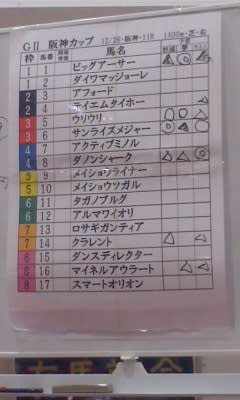 GⅡ 阪神カップ 12/26・阪神・11R 1400m・芝・右
枠 馬番 馬名
1 1 ビッグアーサー
1 2 ダイワマッジョーレ
2 3 アフォード
2 4 テイエムタイホー
3 5 ウリウリ
3 6 サンライズメジャー
4 7 アクティブミノル
4 8 ダノンシャーク
5 9 メイショウライナー
5 10 メイショウツガル
6 11 タガノブルグ
6 12 アルマワイオリ
7 13 ロサギガンティア
7 14 クラレント
8 15 ダンスディレクター
8 16 マイネルアウラート
8 17 スマートオリオン